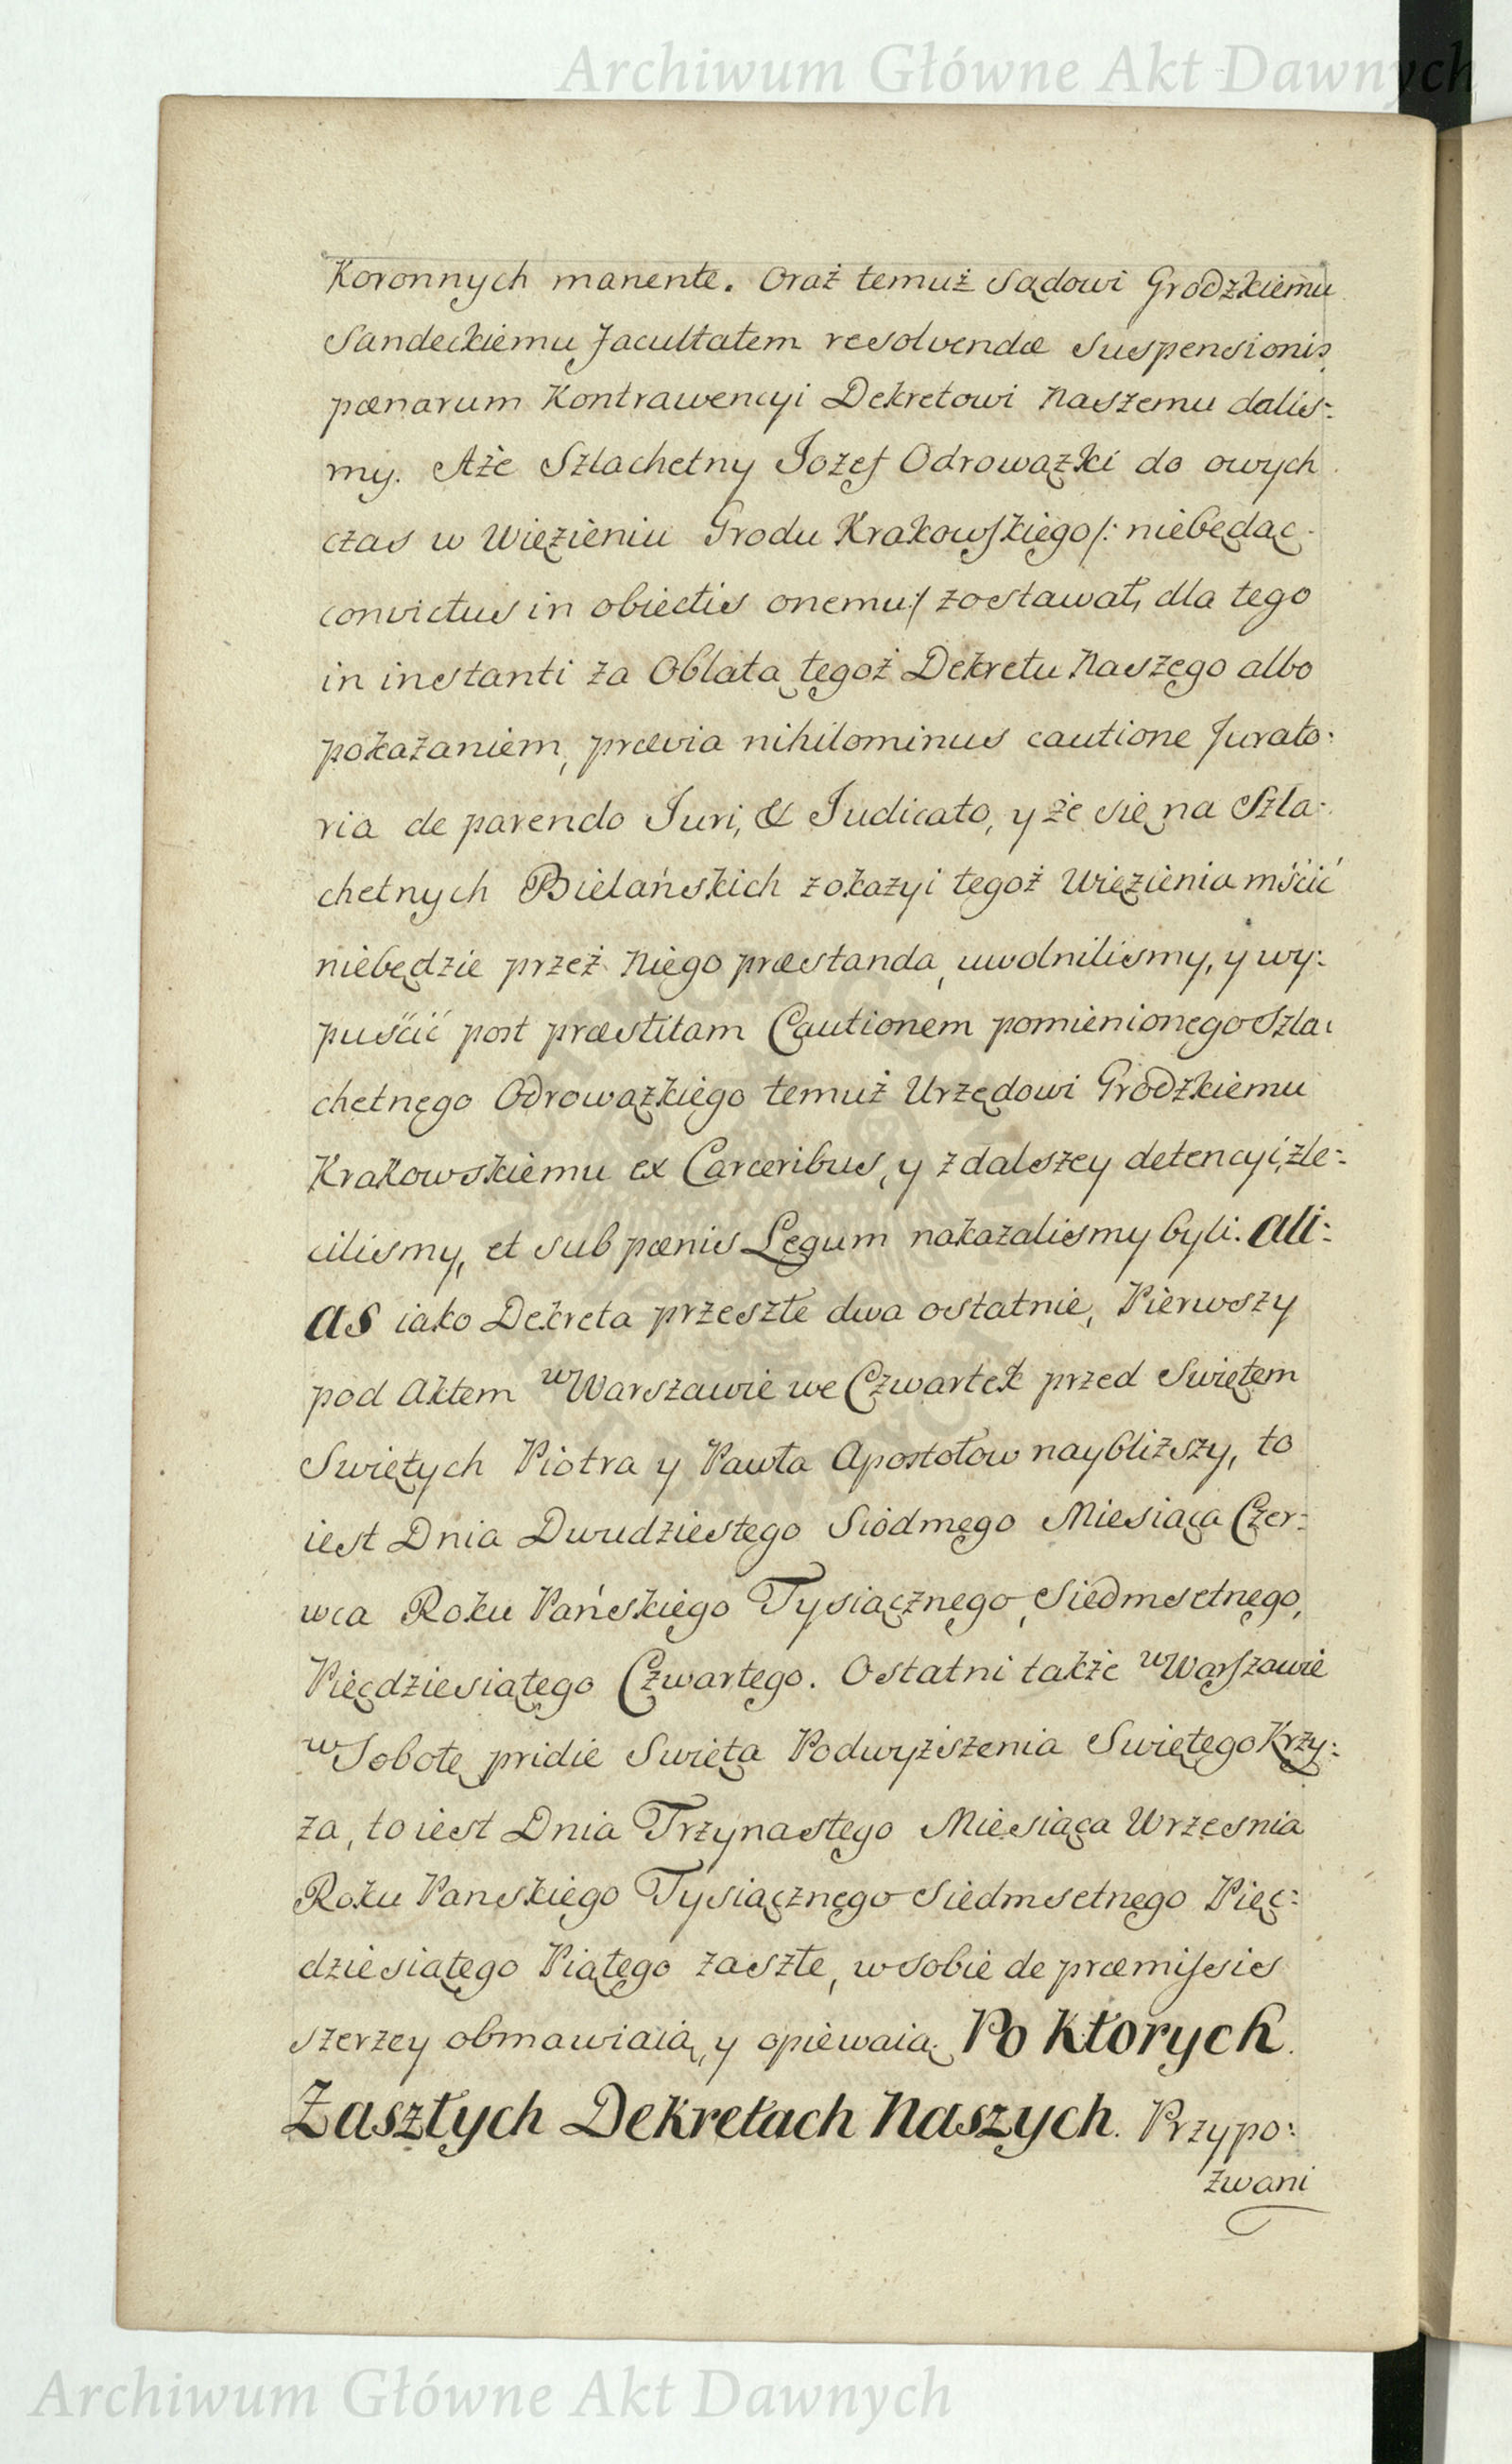 Archiwum Główne Akt Dawnych
Koronnych manente. Oraż temuż Sądowi Grodzkiemu
Sandeckiemu facultatem resolvendæ suspensionis
pœnarum Kontrawencyi Dekretowi Naszemu dalis:
my. Aże Szlachetny Jozef Odrowązki do owych
czas w Więzieniu Grodu Krakowskiego /: niebędąc
convictus in obiectis onemu :/ zostawał, dla tego
in instanti za Oblatą tegoż Dekretu Naszego albo
pokazaniem, prævia nihilominus cautione Jurato:
ria de parendo Juri, & Judicato, y że się na Szla:
chetnych Bielańskich z okazyi tegoż Więzienia mścić
niebędzie przez Niego præstanda, uwolnilismy, y wy:
puścić post præstitam Cautionem pomienionego Szla:
chetnego Odrowązkiego temuż Urzędowi Grodzkiemu
Krakowskiemu ex Carceribus, y z dalszey detencyi, zle:
cilismy, et sub pœnis Legum nakazalismy byli. Ali:
as iako Dekreta przeszłe dwa ostatnie, Pierwszy
pod Aktem w Warszawie we Czwartek przed Swiętem
Swiętych Piotra y Pawła Apostołow naybliższy, to
iest Dnia Dwudziestego Siódmego Miesiąca Czer:
wca Roku Pańskiego Tysiącznego, Siedmsetnego,
Pięcdziesiątego Czwartego. Ostatni także w Warszawie
w Sobotę pridie Swięta Podwyższenia Swiętego Krzy:
za, to iest Dnia Trzynastego Miesiąca Wrzesnia
Roku Panskiego Tysiącznego Siedmsetnego Pięc:
dziesiątego Piątego zaszłe, w sobie de præmissis
szerzey obmawiaią, y opiewaią. Po Ktorych
Zaszłych Dekretach Naszych. Przypo:
zwani
Archiwum Główne Akt Dawnych